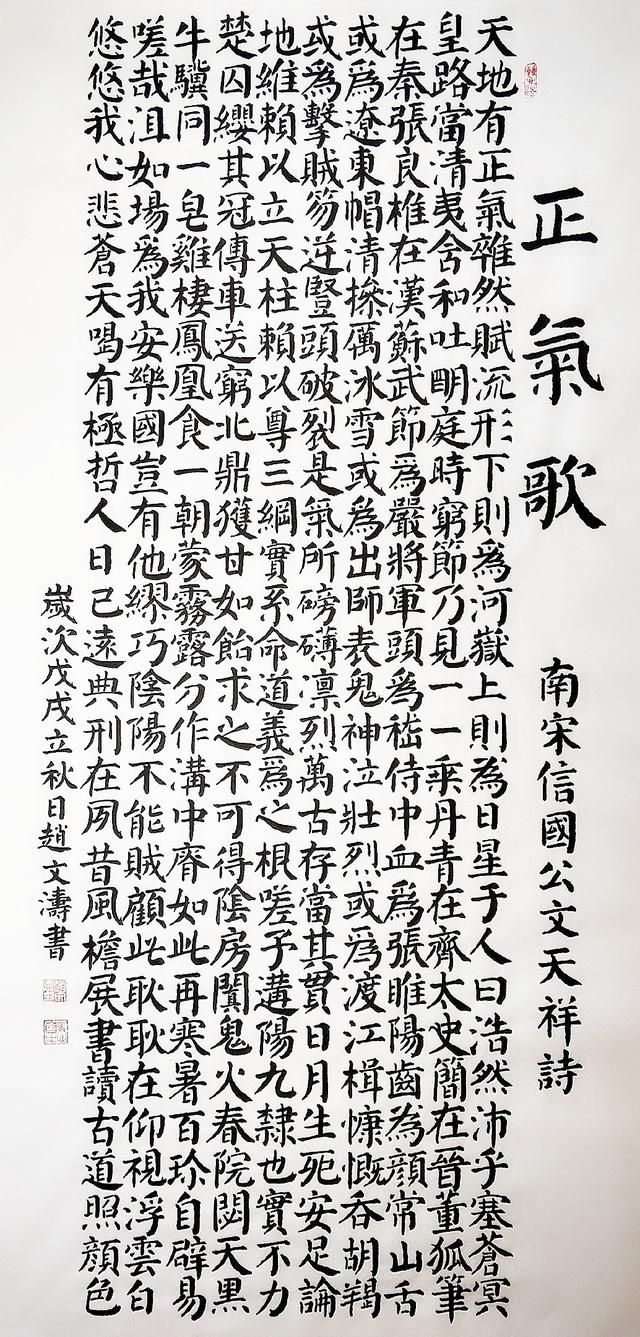 正氣歌
南宋信國公文天祥詩
天地有正氣雜然賦流形下則爲河嶽上則為日星于人曰浩然沛乎塞蒼冥
皇路當清夷含和吐明庭時窮節乃見一一垂丹青在齊太史簡在晉董狐筆
在秦張良椎在漢蘇武節為嚴將軍頭為嵇侍中血爲張睢陽齒為顏常山舌
或爲遼東帽清操厲冰雪或為出師表鬼神泣壯烈或爲渡江楫慷慨吞胡羯
或爲擊賊笏逆豎頭破裂是氣所磅礴凛烈萬古存當其貫日月生死安足論
地維賴以立天柱賴以尊三綱實系命道義爲之根嗟予遘陽九隸也實不力
楚囚纓其冠傳車送窮北鼎獲甘如飴求之不可得陰房闃鬼火春院閟天黑
牛驥同一皂雞棲鳳凰食一朝蒙霧露分作溝中瘠如此再寒暑百沴自辟易
嗟哉沮如場爲我安樂國豈有他繆巧陰陽不能賊顧此耿耿在仰視浮雲白
悠悠我心悲蒼天曷有極哲人日已遠典刑在夙昔風檐展書讀古道照顏色
歲次戊戌立秋日趙文濤書